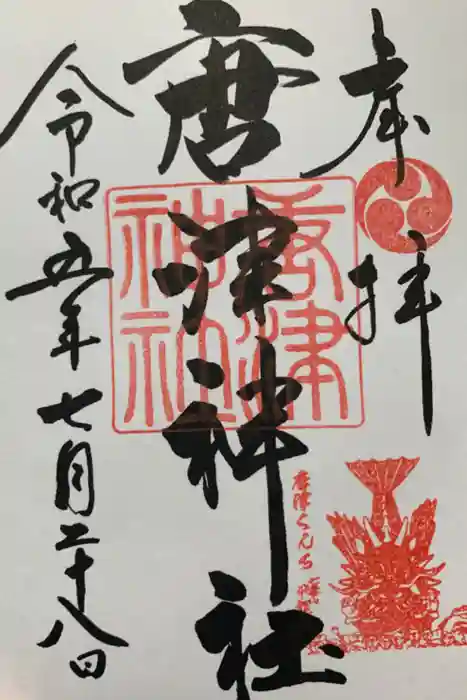 奉拝
唐津神社
唐津神社
令和五年七月二十八日
唐津くんち